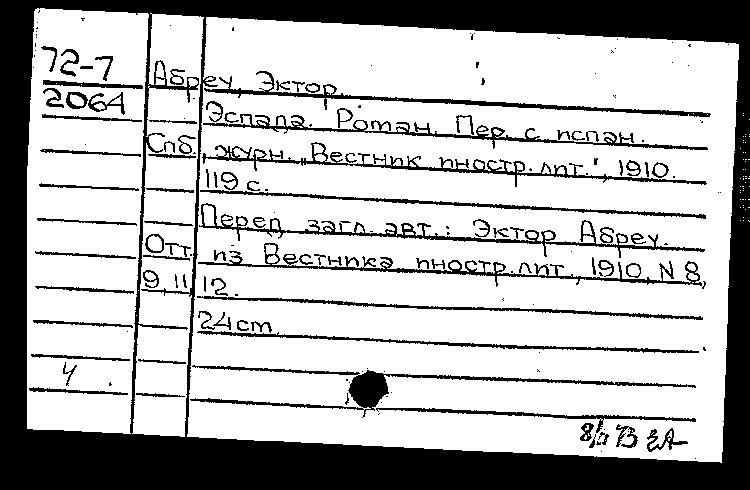 72-7 Абреу, Эктор.
2064 Эспада. Роман. Пер. с испан.
Спб., журн. „Вестник иностр. лит.", 1910.
119 с.
Перед загл. авт.: Эктор Абреу.
Отт. из Вестника иностр. лит., 1910, N 8,
9, 11, 12.
24 cm
4
73